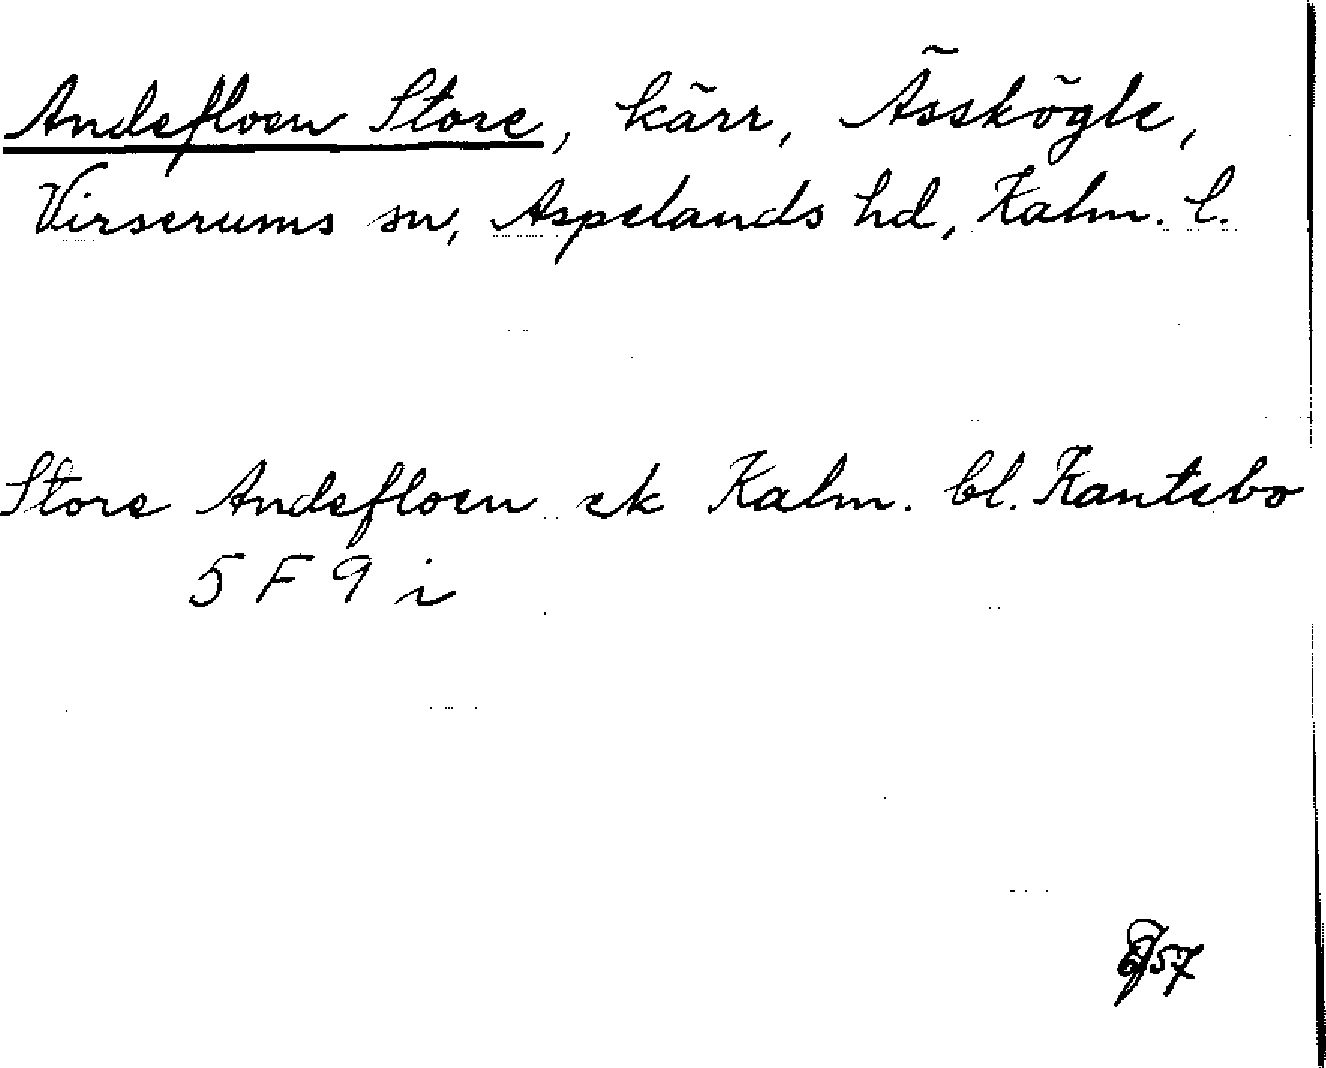 Andefloen Store, kärr, Ässkögle,
Virserums sn, Aspelands hd, Kalm. l.
Store Andefloen ek Kalm. bl. Kantebo
5 F 9 i
57